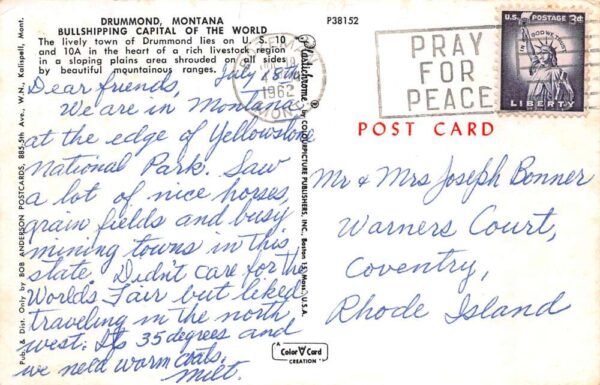 DRUMMOND, MONTANA
BULLSHIPPING CAPITAL OF THE WORLD
The lively town of Drummond lies on U. S. 10
and 10A in the heart of a rich livestock region
in a sloping plains area shrouded on all sides
by beautiful mountainous ranges.
P38152
July 18th
Dear friends,
We are in Montana
at the edge of Yellowstone
National Park. Saw
a lot of nice horses,
grain fields and busy
mining towns in this
state. Didn't care for the
Worlds Fair but liked
traveling in the north
west. Its 35 degrees and
we need warm coats.
Milt.
Pub. & Dist. Only by BOB ANDERSON POSTCARDS, 885-5th Ave., W.N., Kalispell, Mont.
Plastichrome ® by COLOURPICTURE PUBLISHERS, INC., Boston 15, Mass., U.S.A.
1962
PRAY
FOR
PEACE
U.S. POSTAGE 3¢
IN GOD WE TRUST
LIBERTY
POST CARD
Mr & Mrs Joseph Bonner
Warners Court,
Coventry,
Rhode Island
A
Color Card
CREATION